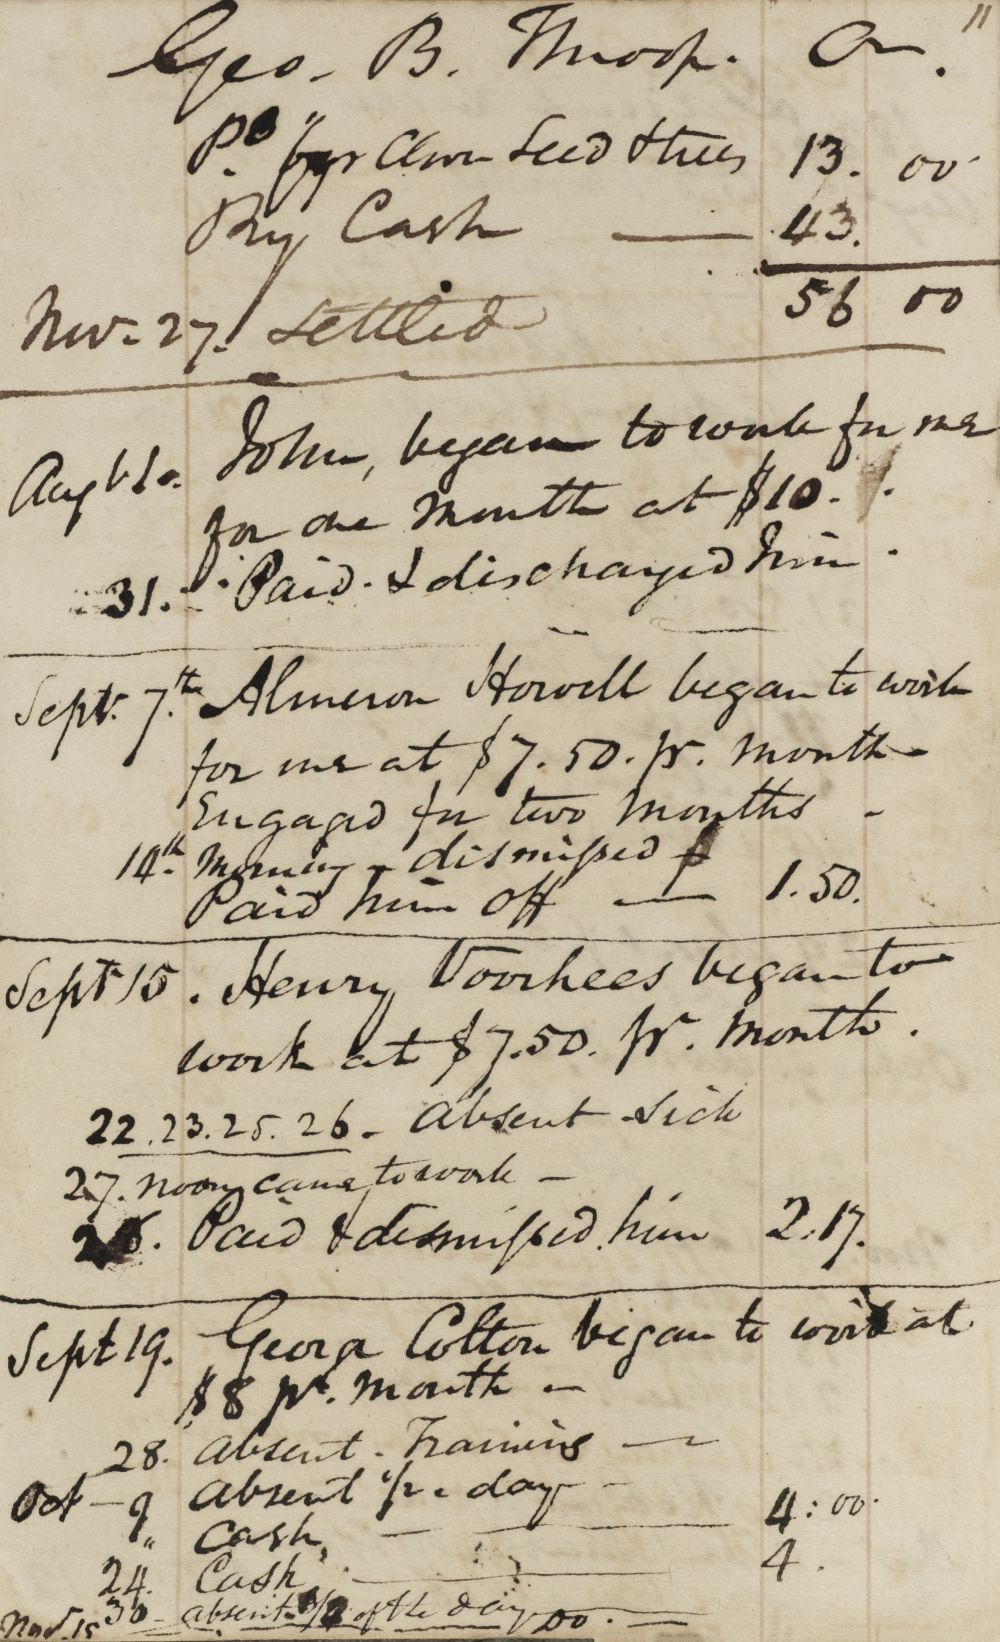 11
Geo. B. Throop. Cr.
Pd for Clover Seed & trees 13. 00
By Cash — 43.
56 00
Nov. 27. Settled
Augt 1. John, began to work for me
for one month at $10.
31. Paid. & discharged him.
Sept. 7.th Almeron Howell began to work
for me at $7.50. pr. month
Engaged for two months -
14th. Morning - dismissed &
Paid him off — 1.50.
Sept 15. Henry Voorhees began to
work at $7.50. pr. Month.
22.23.25.26. absent sick
27. noon came to work -
Paid & dismissed him 2.17.
Sept 19. George Colton began to work at
$8 pr. month -
28. absent. Training —
Oct - 9 absent 1/2 day -
" Cash, — 4:00.
24. Cash — 4.
30 - absent 1/2 of the day
Nov. 15 do. —